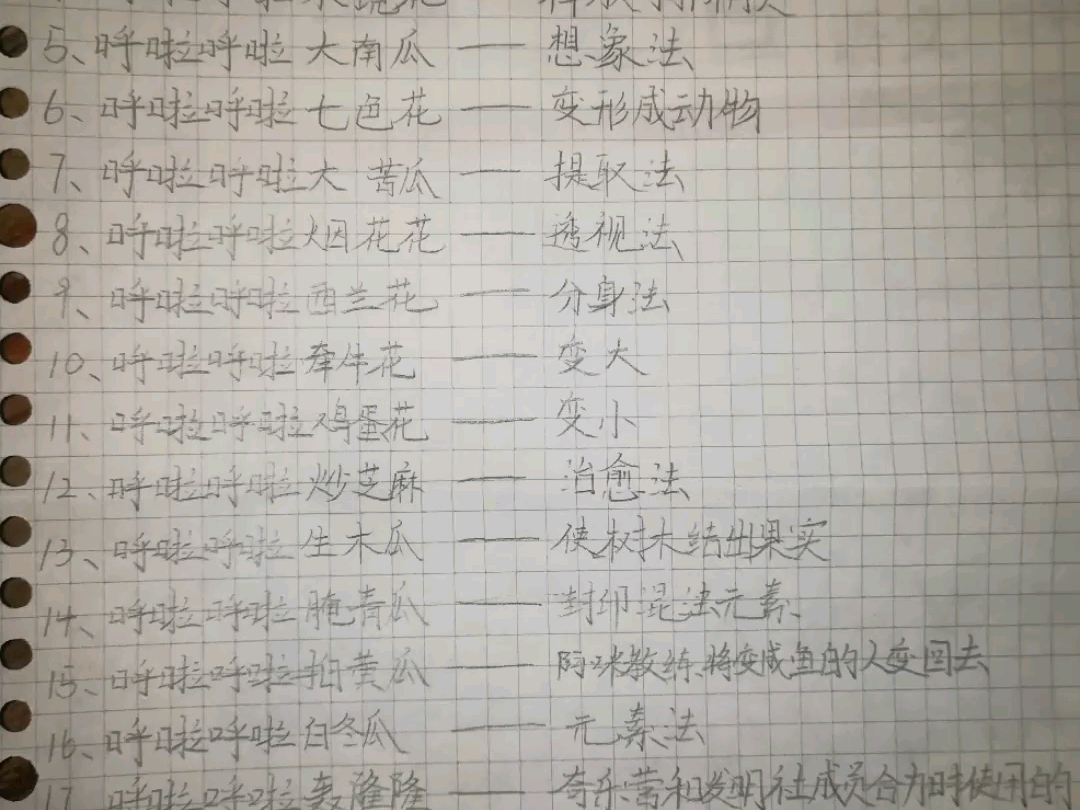 5、呼啦呼啦大南瓜 —— 想象法
6、呼啦呼啦七色花 —— 变形成动物
7、呼啦呼啦大苦瓜 —— 提取法
8、呼啦呼啦烟花花 —— 透视法
9、呼啦呼啦西兰花 —— 分身法
10、呼啦呼啦牵牛花 —— 变大
11、呼啦呼啦鸡蛋花 —— 变小
12、呼啦呼啦炒芝麻 —— 治愈法
13、呼啦呼啦生木瓜 —— 使树木结出果实
14、呼啦呼啦腌青瓜 —— 封印混沌元素
15、呼啦呼啦拍黄瓜 —— 阿咪教练、将变成鱼的人变回去
16、呼啦呼啦白冬瓜 —— 元素法
17、呼啦呼啦轰隆隆 —— 奇乐营和发明社成员合力时使用的